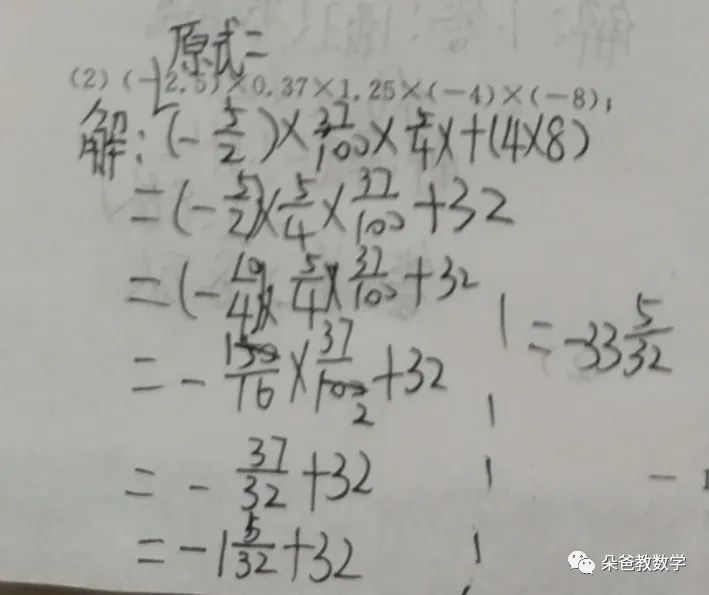 原式=
(2) (-2.5)×0.37×1.25×(-4)×(-8);
解:(-5/2)×37/100×5/4×+(4×8)
=(-5/2)×5/4×37/100+32
=(-10/4)×5/4×37/100+32
=-150/16×37/100 2+32
=-37/32+32
=-1 5/32+32
=-33 5/32
朵爸教数学